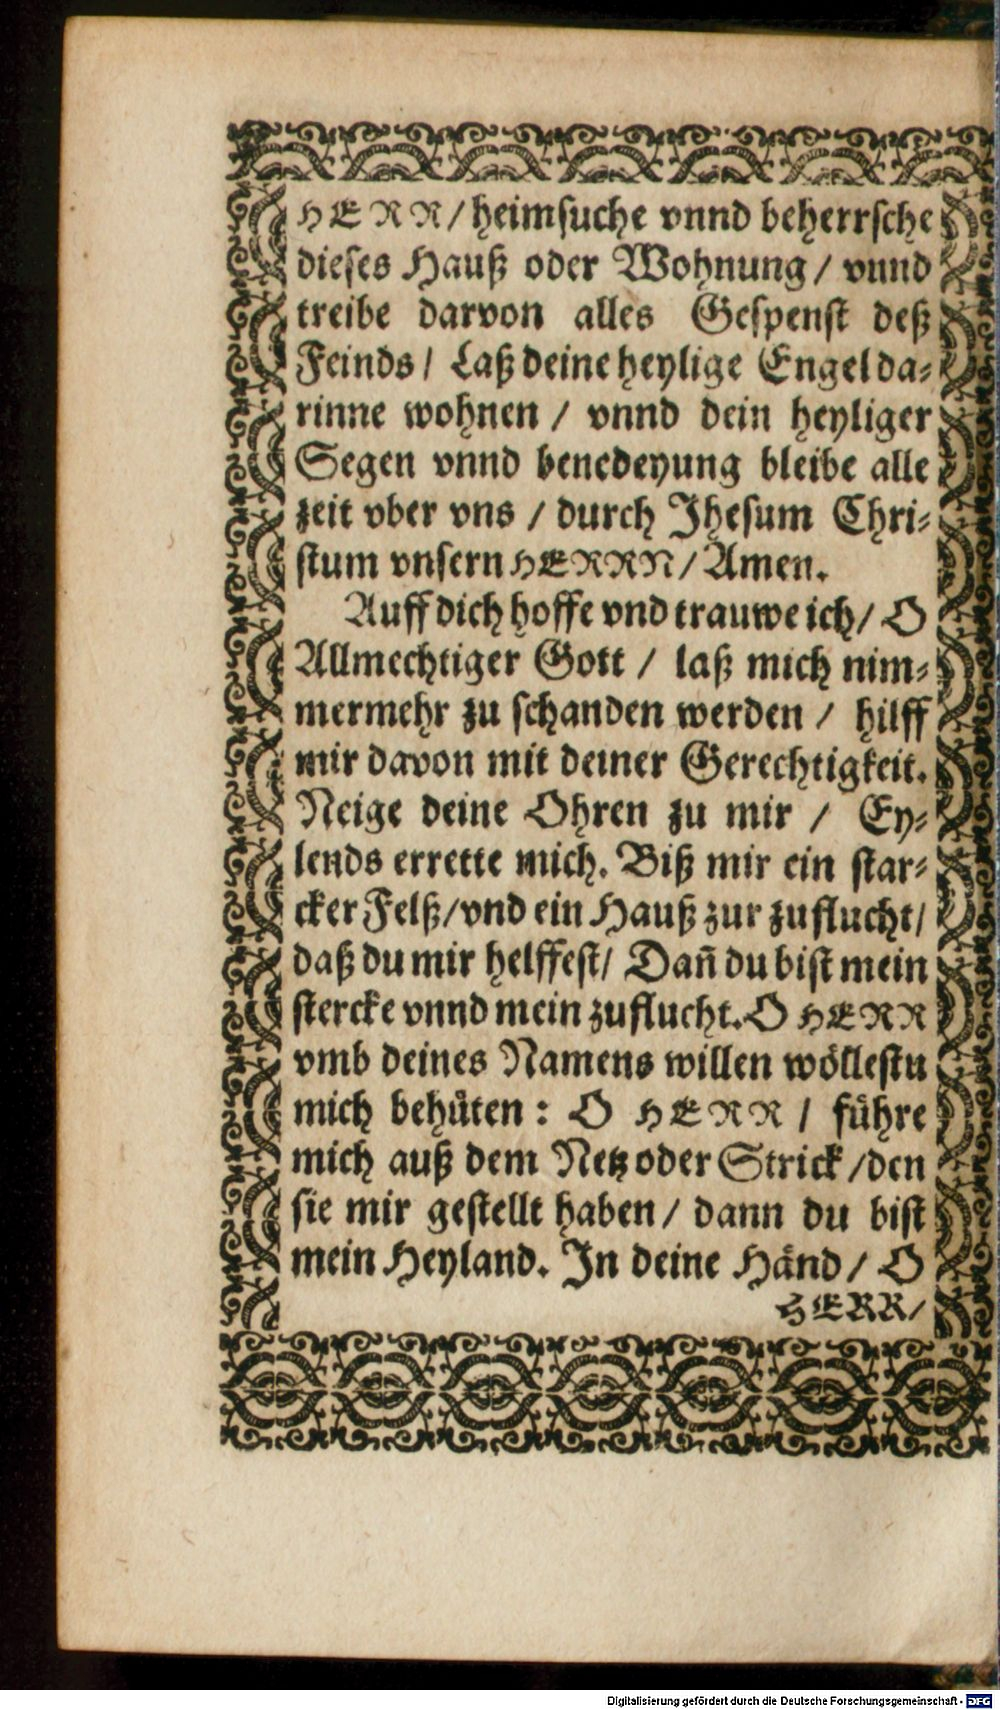 HERR/ heimsuche vnnd beherrsche
dieses Hauß oder Wohnung / vnnd
treibe darvon alles Gespenst deß
Feinds / Laß deine heylige Engel da⸗
rinne wohnen / vnnd dein heyliger
Segen vnnd benedeyung bleibe alle
zeit vber vns / durch Jhesum Chri⸗
stum vnsern HERRN/ Amen.
Auff dich hoffe vnd trauwe ich/ O
Allmechtiger Gott / laß mich nim⸗
mermehr zu schanden werden / hilff
mir davon mit deiner Gerechtigkeit.
Neige deine Ohren zu mir / Ey⸗
lends errette mich. Biß mir ein star⸗
cker Felß/vnd ein Hauß zur zuflucht/
daß du mir helffest/ Dañ du bist mein
stercke vnnd mein zuflucht. O HERR
vmb deines Namens willen wöllestu
mich behüten : O HERR / führe
mich auß dem Netz oder Strick /den
sie mir gestellt haben / dann du bist
mein Heyland. In deine Händ / O
HERR/
Digitalisierung gefördert durch die Deutsche Forschungsgemeinschaft - DFG